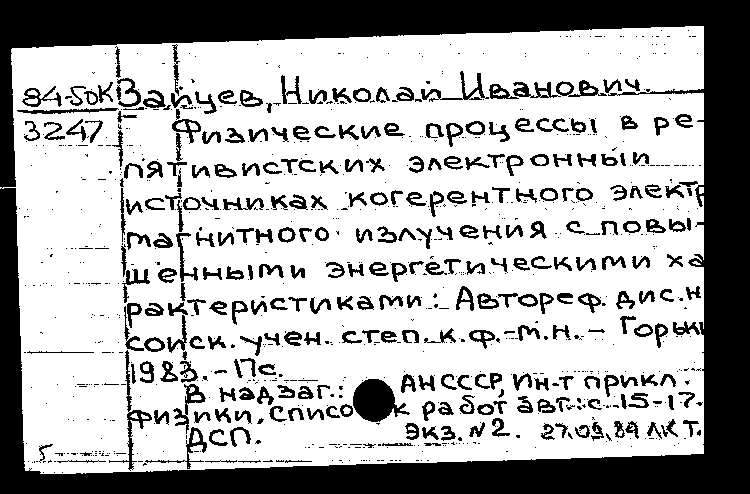 84-5ОК Зайцев, Николай Иванович.
3247 Физические процессы в ре-
лятивистских электронный
источниках когерентного электр
магнитного излучения с повы-
шенными энергетическими ха
рактеристиками: Автореф. дис. н
соиск. учен. степ. к.ф.-м.н. – Горьки
1983. - 17с.
В надзаг.: АН СССР, Ин-т прикл.
физики. Списо к работ авт.: с. 15-17.
ДСП. Экз. №2. 27.09.84 ЛКТ.
5